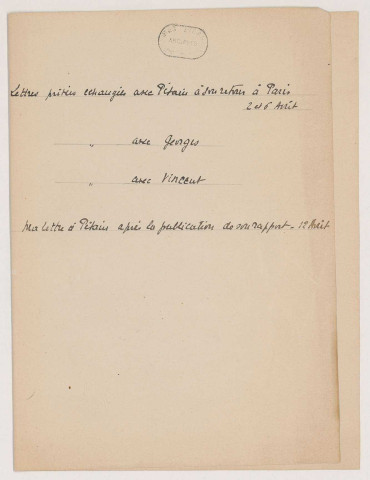 Lettres privées echangées avec Pétain à son retour à Paris
2 et 6 Août
" avec Georges
" avec Vincent
Ma lettre à Pétain après la publication de son rapport - 12 Août